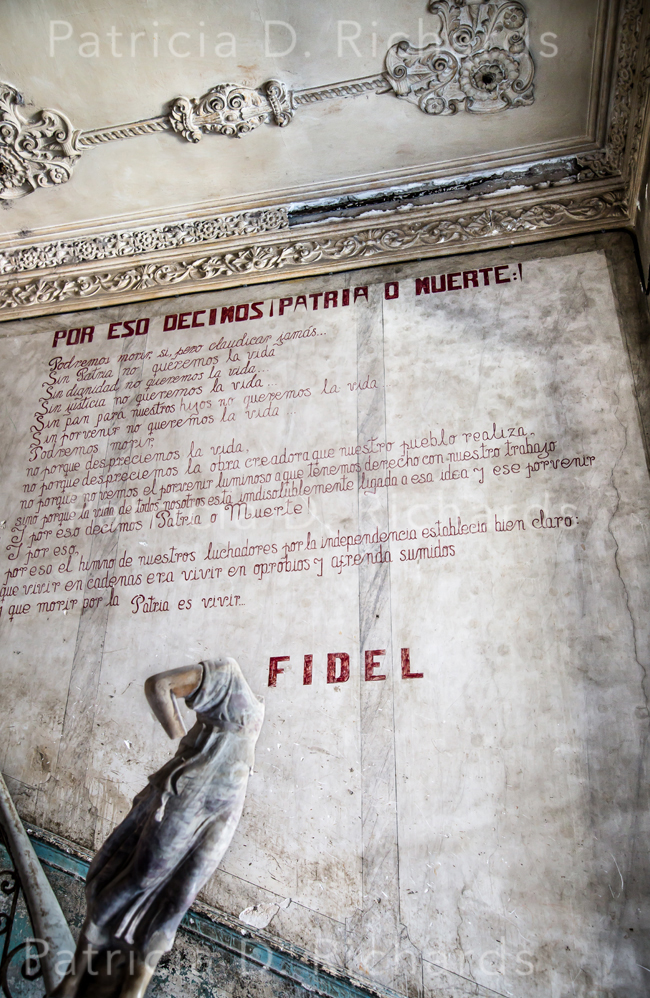 Patricia D. Richards
POR ESO DECIMOS ¡PATRIA O MUERTE!
Podremos morir, si, pero claudicar jamás...
Sin Patria no queremos la vida
Sin dignidad no queremos la vida...
Sin justicia no queremos la vida...
Sin pan para nuestros hijos no queremos la vida...
Sin porvenir no queremos la vida...
Podremos morir,
no porque despreciemos la vida,
no porque despreciemos la obra creadora que nuestro pueblo realiza,
no porque no vemos el porvenir luminoso a que tenemos derecho con nuestro trabajo
sino porque la vida de todos nosotros está indisolublemente ligada a esa idea y ese porvenir
Y por eso decimos ¡Patria o Muerte!
Y por eso,
por eso el himno de nuestros luchadores por la independencia establecia bien claro:
que vivir en cadenas era vivir en oprobios y afrenda sumidos
y que morir por la Patria es vivir...
FIDEL
Patricia D. Richards